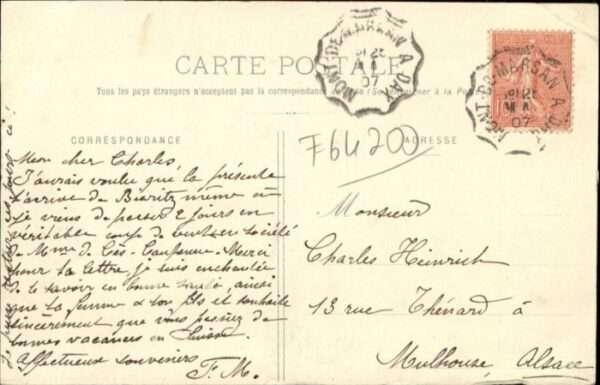 MONT-DE-MARSAN A DAX
07
MONT-DE-MARSAN A DAX
07
CARTE POSTALE
Tous les pays étrangers n'acceptent pas la correspondance au
CORRESPONDANCE
ADRESSE
F64200
Mon cher Charles,
J'aurais voulu que la présente
t'arrive de Biarritz même où
je viens de passer 2 jours en
véritable
de Mme de Merci
pour ta lettre, je suis enchantée
de te savoir en bonne santé, ainsi
que ta femme & ton fils et souhaite
sincèrement que vous passiez de
bonnes vacances en Suisse
Affectueux souvenirs
F. M.
Monsieur
Charles Heinrich
13 rue Thénard à
Mulhouse, Alsace